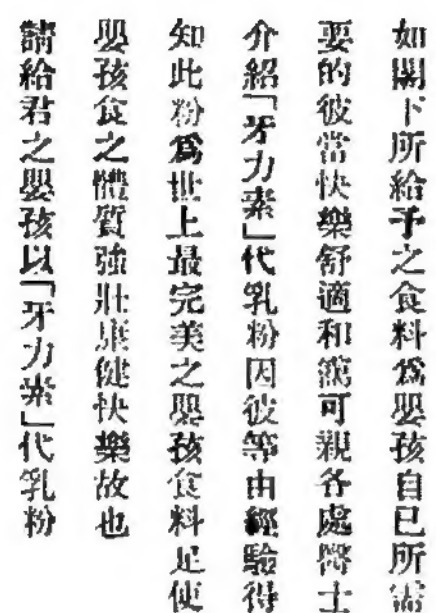 如閣下所給予之食料爲嬰孩自己所需
要的彼當快樂舒適和藹可親各處醫士
介紹「牙力素」代乳粉因彼等由經驗得
知此粉爲世上最完美之嬰孩食料足使
嬰孩食之體質強壯康健快樂故也
請給君之嬰孩以「牙力素」代乳粉